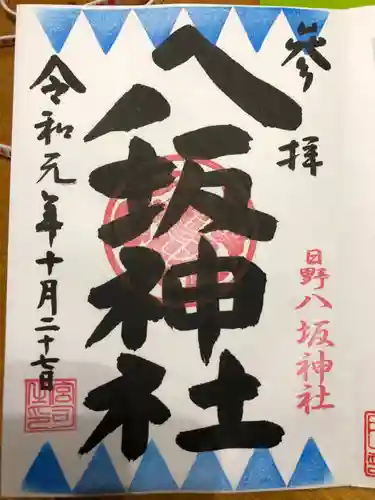 參拝
日野八坂神社
八坂神社
令和元年十月二十七日
宮司之印